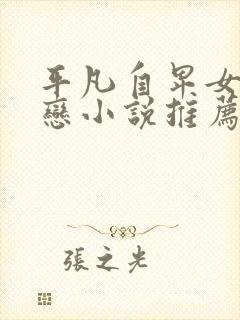 平凡自卑女
戀小說推薦
張之光